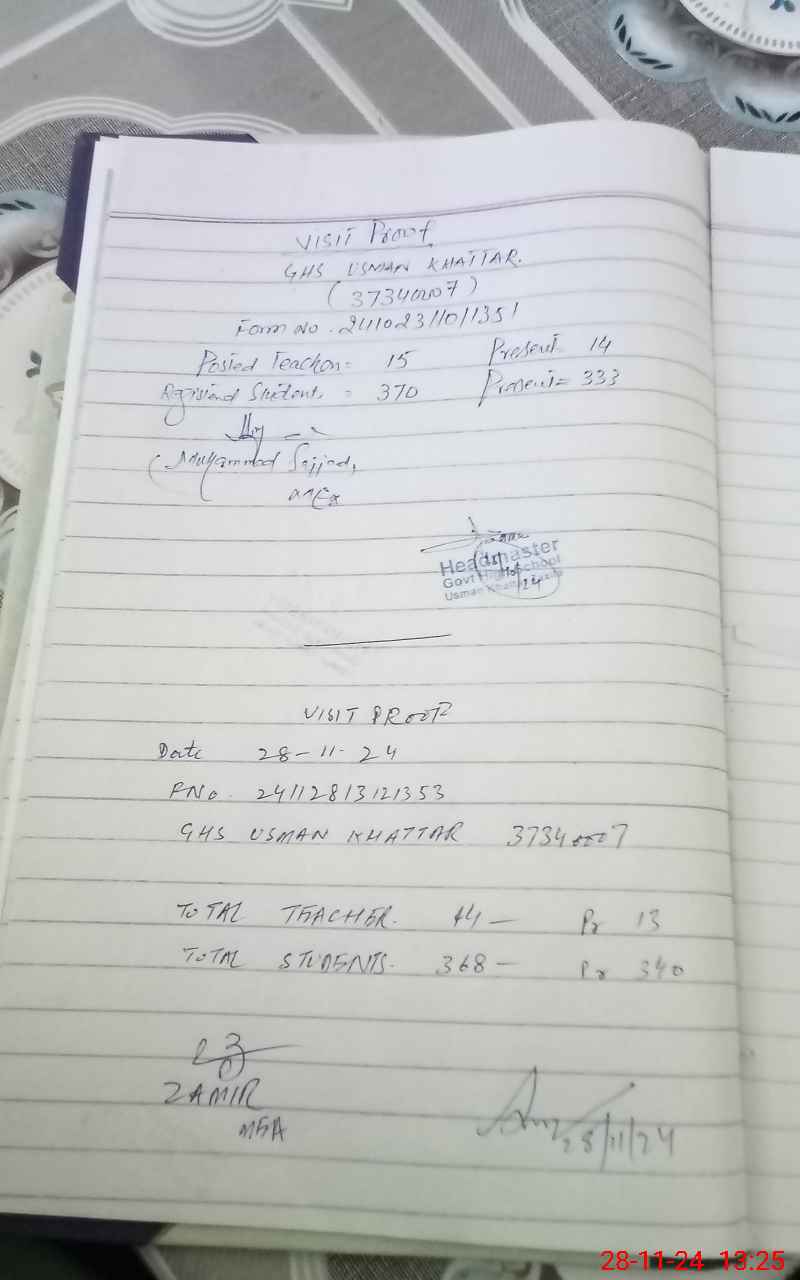 VISIT Proof
GHS USMAN KHATTAR.
(37340007)
Form No. 24102311011351
Posted Teacher= 15 Present= 14
Registered Students = 370 Present= 333
(Muhammad Sajjad,
MEA
Headmaster
Govt High School
Usman Khattar
24
VISIT PROOF
Date 28-11-24
FNo. 24112813121353
GHS USMAN KHATTAR 37340007
TOTAL TEACHER. 14 — Pr 13
TOTAL STUDENTS. 368 — Pr 340
ZAMIR
MEA
28/11/24
28-11-24 13:25